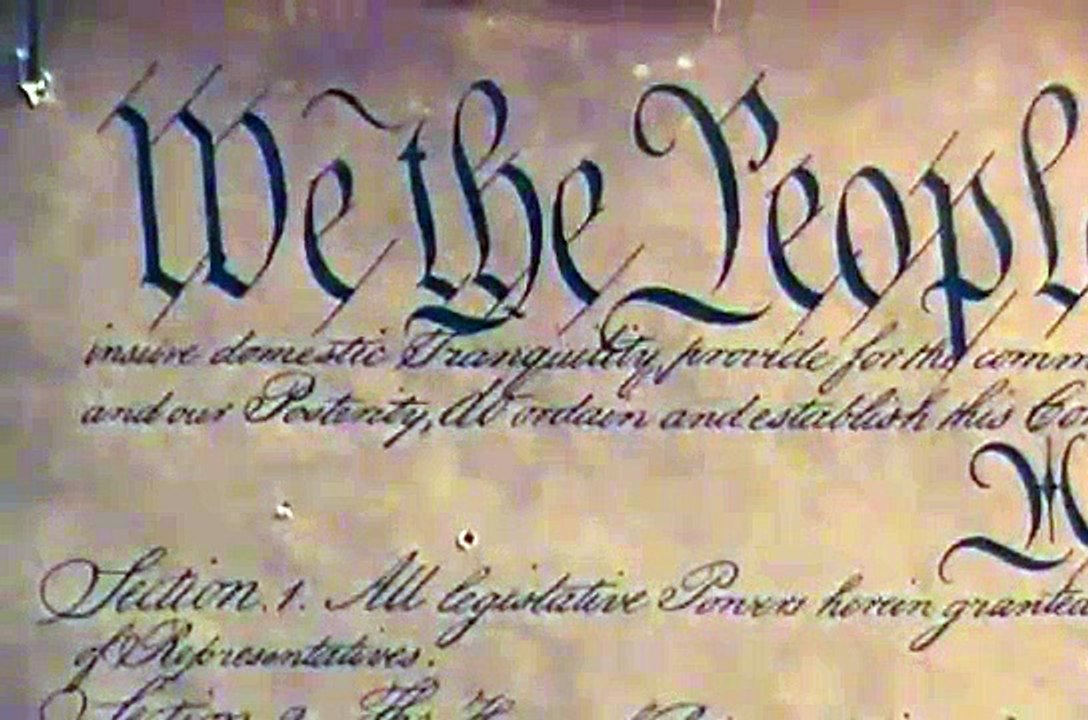 We the Peopl
insure domestic Tranquility, provide for the comm
and our Posterity, do ordain and establish this Co
Section. 1. All legislative Powers herein granted
of Representatives.
Section 2. The